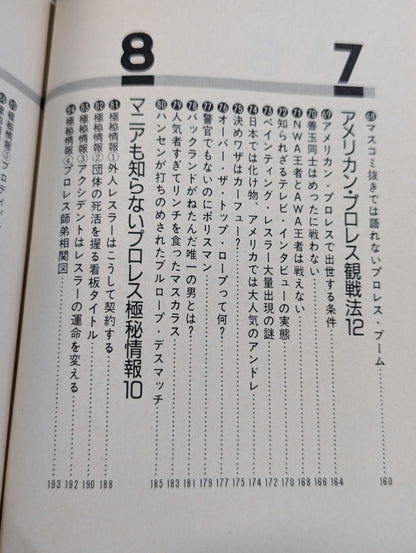 68 マスコミ抜きでは語れないプロレス・ブーム 160
7
アメリカン・プロレス観戦法12
69 アメリカン・プロレスで出世する条件 164
70 善玉同士はめったに戦わない 166
71 NWA王者とAWA王者は戦えない 168
72 知られざるテレビ・インタビューの実態 170
73 ペインティング・レスラー大量出現の謎 172
74 日本では化け物、アメリカでは大人気のアンドレ 174
75 決めワザはカーフー? 175
76 オーバー・ザ・トップ・ロープって何? 177
77 警官でもないのにポリスマン 179
78 バックランドがねたんだ唯一の男とは? 181
79 人気者すぎてリンチを食ったマスカラス 183
80 ハンセンが打ちのめされたブルロープ・デスマッチ 185
8
マニアも知らないプロレス極秘情報10
81 極秘情報①外人レスラーはこうして契約する 188
82 極秘情報②団体の死活を握る看板タイトル 190
83 極秘情報③アクシデントはレスラーの運命を変える 192
84 極秘情報④プロレス師弟相関図 193
85 極秘情報⑤